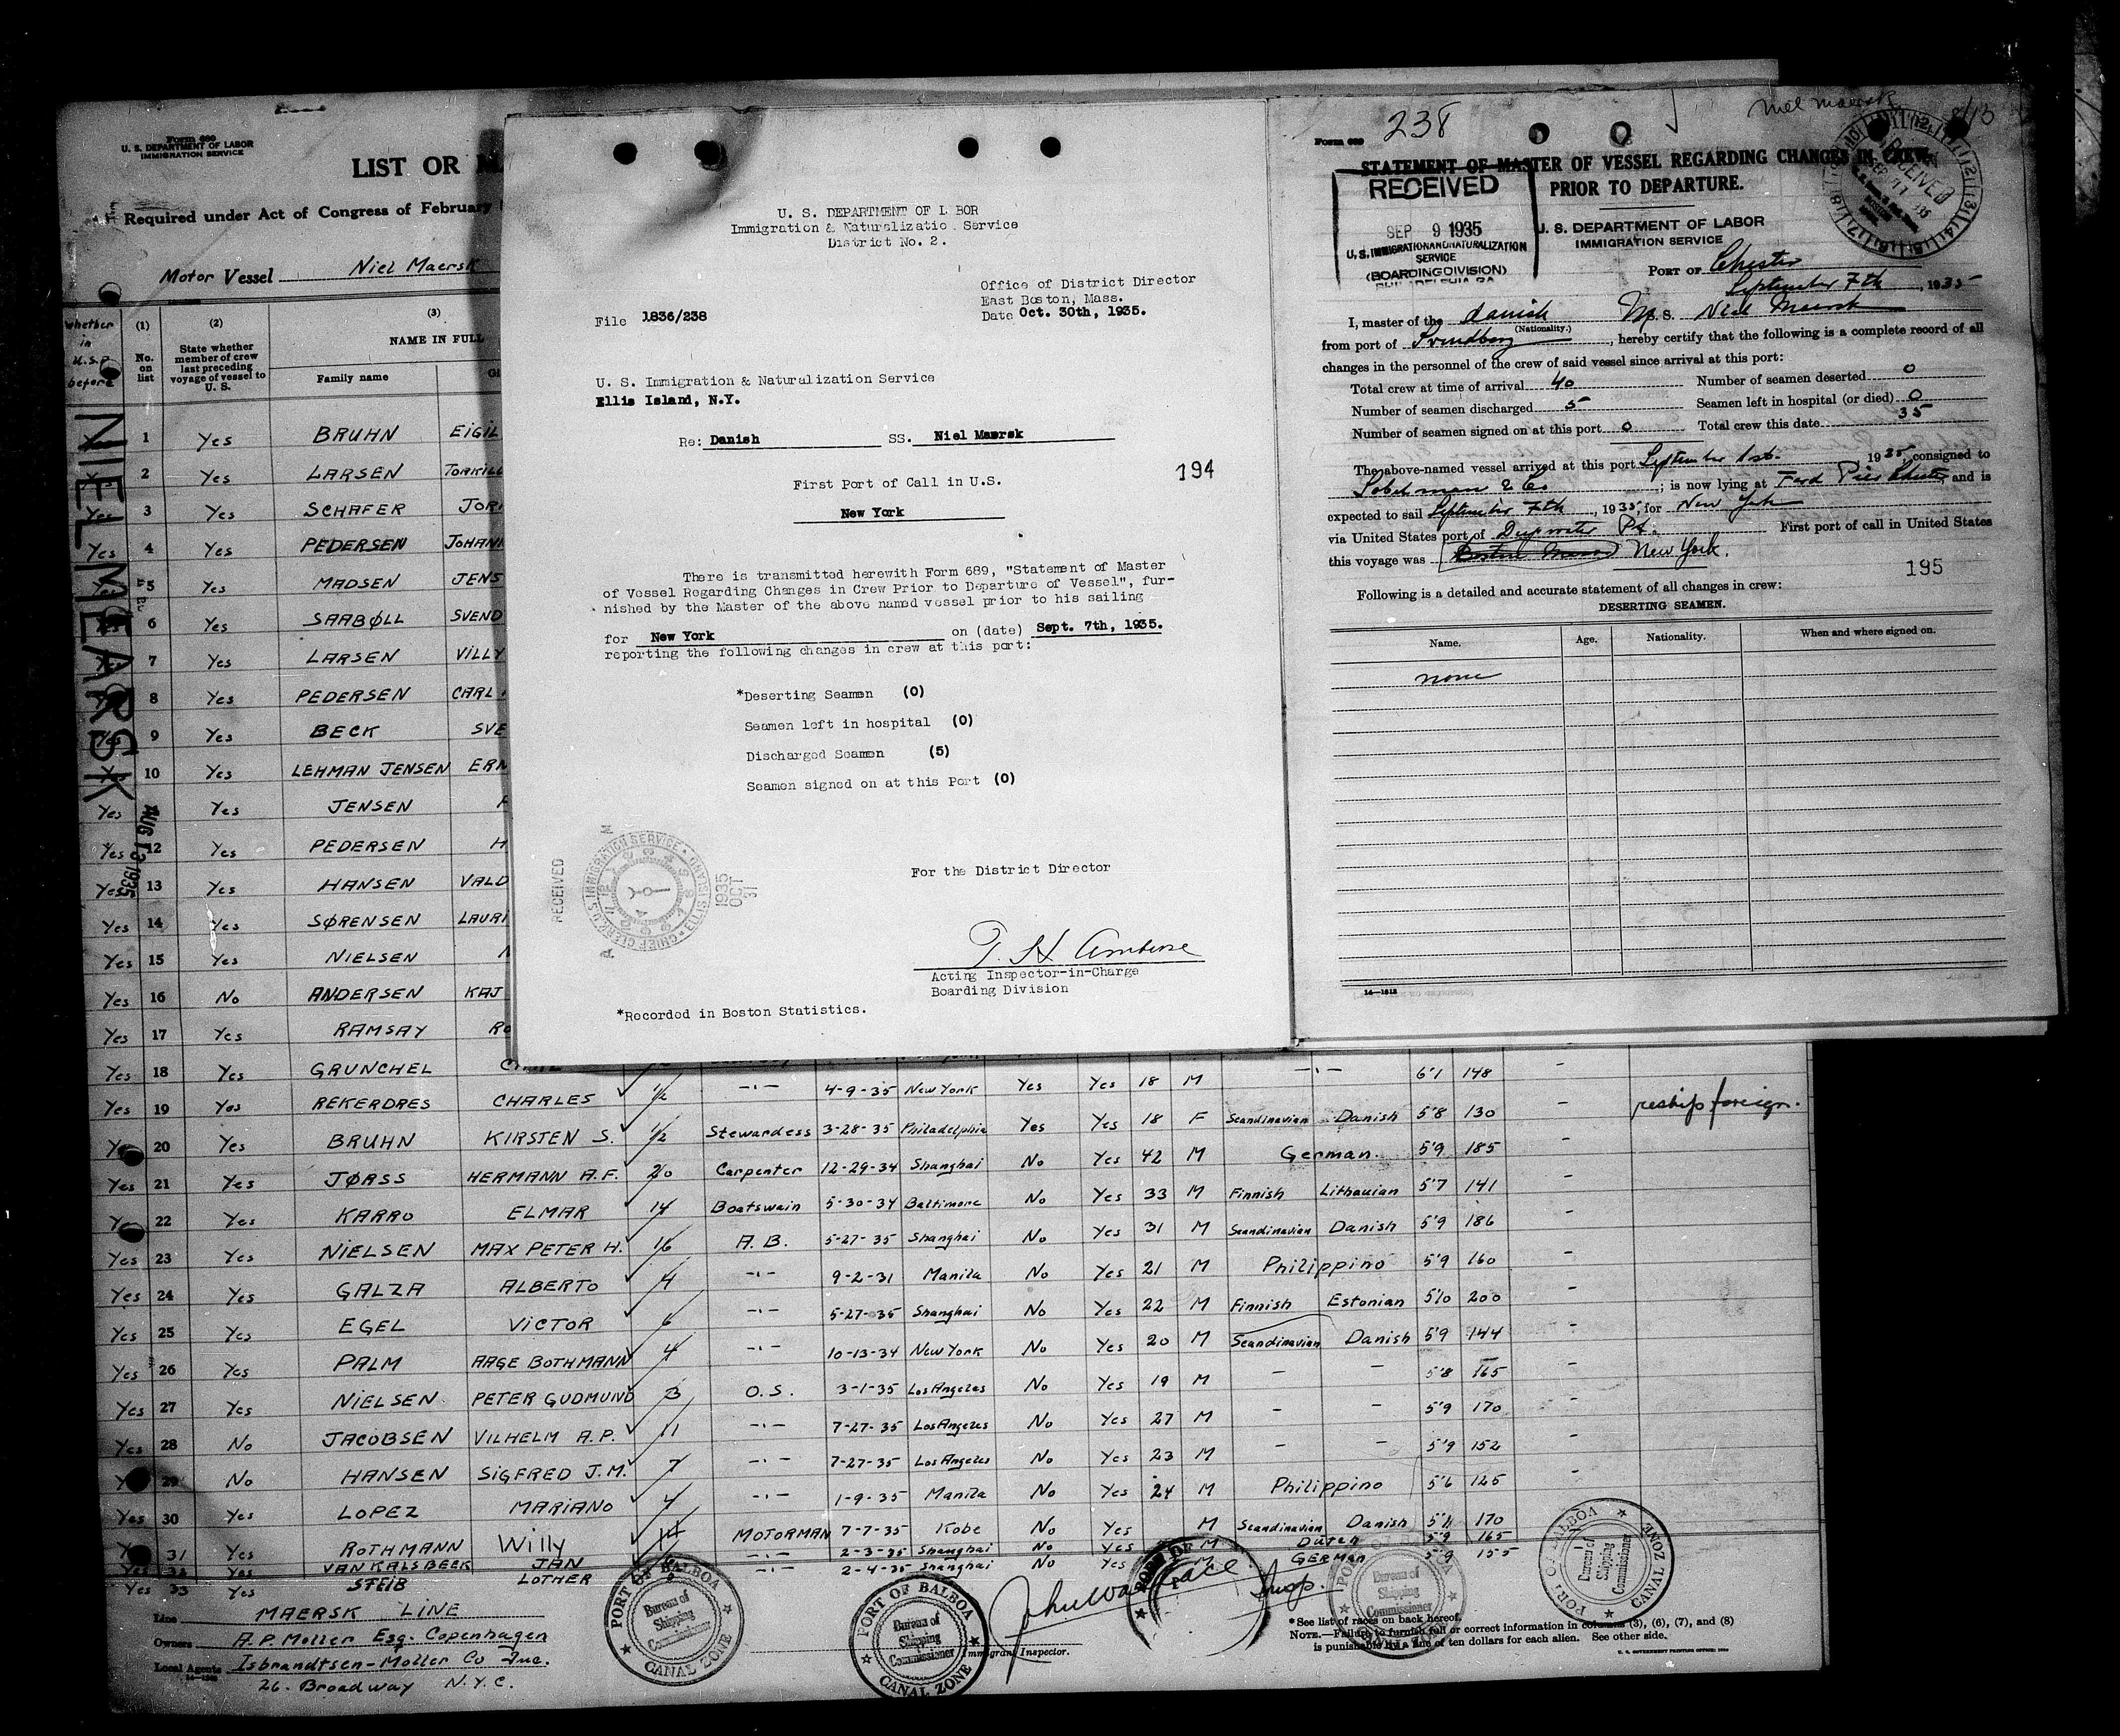 Form 689
U. S. DEPARTMENT OF LABOR
IMMIGRATION SERVICE
LIST OR
Required under Act of Congress of February
Motor Vessel Niel Maersk
Whether in U.S.A before
(1) No. on list
(2) State whether member of crew last preceding voyage of vessel to U. S.
(3) NAME IN FULL
Family name
NIEL MEARSK
AUG 13 1935
1 Yes BRUHN EIGIL
Yes 2 Yes LARSEN TORKILL
Yes 3 Yes SCHAFER JOR
Yes 4 Yes PEDERSEN JOHANN
Yes 5 Yes MADSEN JENS
6 Yes SAABØLL SVEND
7 Yes LARSEN VILLY
8 Yes PEDERSEN CARL
9 Yes BECK SVE
10 Yes LEHMAN JENSEN ERN
Yes Yes JENSEN
Yes 12 Yes PEDERSEN H
Yes 13 Yes HANSEN VALD
Yes 14 Yes SØRENSEN LAURI
Yes 15 Yes NIELSEN
Yes 16 No ANDERSEN KAJ
Yes 17 Yes RAMSAY RO
Yes 18 Yes GRUNCHEL
Yes 19 Yes REKERDRES CHARLES 1/2 -"- 4-9-35 New York Yes Yes 18 M -"- 6'1 148 -
Yes 20 Yes BRUHN KIRSTEN S. 1/2 Stewardess 3-28-35 Philadelphia Yes Yes 18 F Scandinavian Danish 5'8 130 - reship foreign.
Yes 21 Yes JØRSS HERMANN A.F. 20 Carpenter 12-29-34 Shanghai No Yes 42 M German 5'9 185 -
22 Yes KARRO ELMAR 14 Boatswain 5-30-34 Baltimore No Yes 33 M Finnish Lithauian 5'7 141 -
Yes 23 Yes NIELSEN MAX PETER H. 16 A.B. 5-27-35 Shanghai No Yes 31 M Scandinavian Danish 5'9 186 -
Yes 24 Yes GALZA ALBERTO 4 -"- 9-2-31 Manila No Yes 21 M Philippino 5'9 160 -
Yes 25 Yes EGEL VICTOR 6 -"- 5-27-35 Shanghai No Yes 22 M Finnish Estonian 5'10 200 -
Yes 26 Yes PALM AAGE BOTHMANN 4 -"- 10-13-34 New York No Yes 20 M Scandinavian Danish 5'9 144 -
Yes 27 Yes NIELSEN PETER GUDMUND 3 O.S. 3-1-35 Los Angeles No Yes 19 M - - 5'8 165 -
Yes 28 No JACOBSEN VILHELM A.P. 11 -"- 7-27-35 Los Angeles No Yes 27 M - - 5'9 170 -
29 No HANSEN SIGFRED J.M. 7 -"- 7-27-35 Los Angeles No Yes 23 M - - 5'9 152 -
Yes 30 Yes LOPEZ MARIANO 4 -"- 1-9-35 Manila No Yes 24 M Philippino 5'6 125 -
31 Yes ROTHMANN Willy 14 MOTORMAN 7-7-35 Kobe No Yes M Scandinavian Danish 5'11 170
Yes VAN KALSBEEK JAN -"- 2-3-35 Shanghai No Yes M Dutch 5'9 165
Yes 33 Yes STEIB LOTHER -"- 2-4-35 Shanghai No Yes M GERMAN 5'9 155
Line MAERSK LINE
Owners A.P. Moller Esq. Copenhagen
Local Agents Isbrandtsen-Moller Co Inc.
26. Broadway N.Y.C.
PORT OF BALBOA
Bureau of Shipping Commissioner
CANAL ZONE
PORT OF BALBOA
Bureau of Shipping Commissioner
CANAL ZONE
John Wallace Insp.
Immigrant Inspector.
PORT OF
Bureau of Shipping Commissioner
PORT OF BALBOA
Bureau of Shipping Commissioner
CANAL ZONE
*See list of races on back hereof.
NOTE.—Failure to furnish full or correct information in columns (3), (6), (7), and (8)
is punishable by a fine of ten dollars for each alien. See other side.
U. S. GOVERNMENT PRINTING OFFICE
U. S. DEPARTMENT OF L BOR
Immigration & Naturalizatio. Service
District No. 2.
Office of District Director
East Boston, Mass.
Date Oct. 30th, 1935.
File 1836/238
U. S. Immigration & Naturalization Service
Ellis Island, N.Y.
Re: Danish SS. Niel Maersk
194
First Port of Call in U.S.
New York
There is transmitted herewith Form 689, "Statement of Master
of Vessel Regarding Changes in Crew Prior to Departure of Vessel", fur-
nished by the Master of the above named vessel prior to his sailing
for New York on (date) Sept. 7th, 1935.
reporting the following changes in crew at this port:
*Deserting Seamen (0)
Seamen left in hospital (0)
Discharged Seamen (5)
Seamen signed on at this Port (0)
RECEIVED
CHIEF CLERK U.S. IMMIGRATION SERVICE ELLIS ISLAND
1935 OCT 31
For the District Director
T. H. Ambrose
Acting Inspector-in-Charge
Boarding Division
*Recorded in Boston Statistics.
Form 689
238
Niel Maersk 8/13
STATEMENT OF MASTER OF VESSEL REGARDING CHANGES IN CREW
PRIOR TO DEPARTURE.
RECEIVED
SEP 9 1935
U.S. IMMIGRATION AND NATURALIZATION
SERVICE
(BOARDING DIVISION)
PHILADELPHIA PA
RECEIVED
SEP 11
U. S. DEPARTMENT OF LABOR
IMMIGRATION SERVICE
PORT OF Chester
September 7th, 1935
I, master of the danish M.S. Niel Maersk
(Nationality.)
from port of Svendborg, hereby certify that the following is a complete record of all
changes in the personnel of the crew of said vessel since arrival at this port:
Total crew at time of arrival 40 Number of seamen deserted 0
Number of seamen discharged 5 Seamen left in hospital (or died) 0
Number of seamen signed on at this port 0 Total crew this date 35
The above-named vessel arrived at this port September 1st. 1935, consigned to
Lobelman & Co; is now lying at Ford Pier Chester and is
expected to sail September 7th, 1935, for New York
via United States port of Deepwater Pt. First port of call in United States
this voyage was New York.
195
Following is a detailed and accurate statement of all changes in crew:
DESERTING SEAMEN.
Name. Age. Nationality. When and where signed on.
none
14—1313